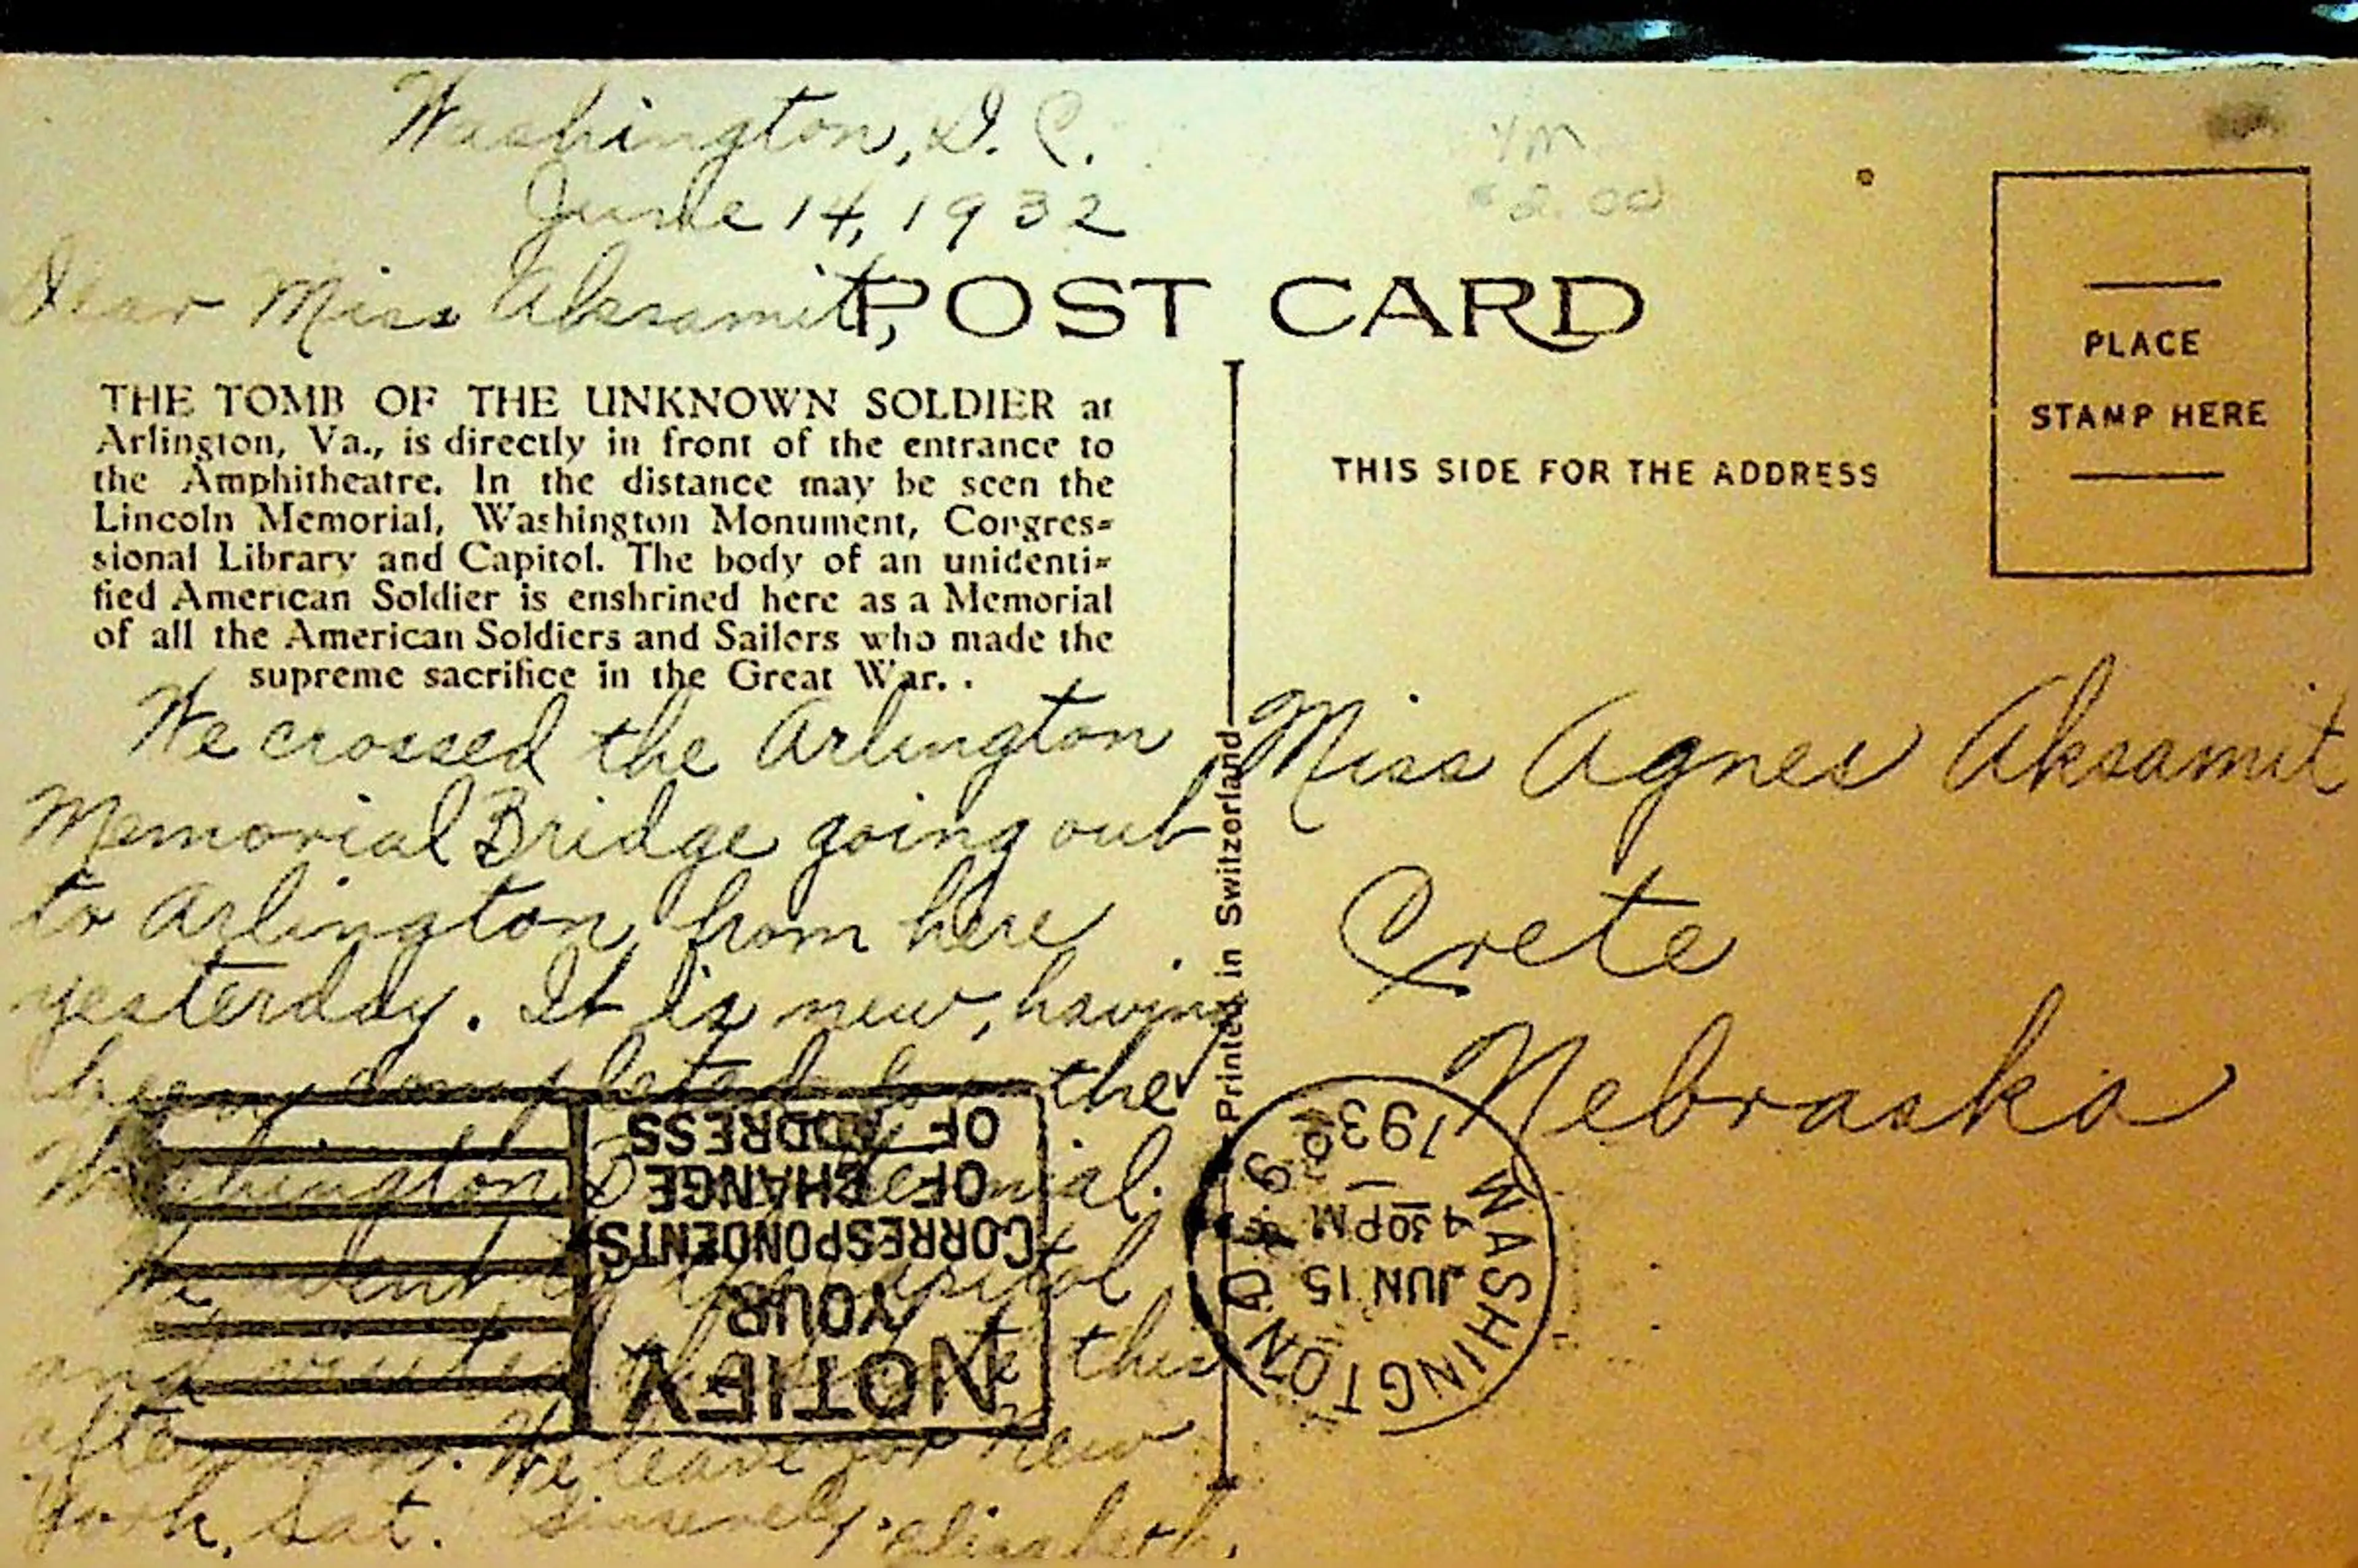 Washington, D. C.
June 14, 1932
Dear Miss Aksamit,
YM
$2.00
POST CARD
THE TOMB OF THE UNKNOWN SOLDIER at
Arlington, Va., is directly in front of the entrance to
the Amphitheatre. In the distance may be seen the
Lincoln Memorial, Washington Monument, Congres-
sional Library and Capitol. The body of an unidenti-
fied American Soldier is enshrined here as a Memorial
of all the American Soldiers and Sailors who made the
supreme sacrifice in the Great War. .
We crossed the Arlington
Memorial Bridge going out
to Arlington from here
yesterday. It is new, having
been completed for the
Washington Bicentennial.
We went to the Capitol
and visited the Senate this
afternoon. We leave for New
York, Sat. Sincerely, Elizabeth.
Printed in Switzorland
THIS SIDE FOR THE ADDRESS
PLACE
STAMP HERE
Miss Agnes Aksamit
Crete
Nebraska
WASHINGTON, D.
JUN 15
4 30 PM
1932
NOTIFY
YOUR
CORRESPONDENTS
OF CHANGE
OF ADDRESS